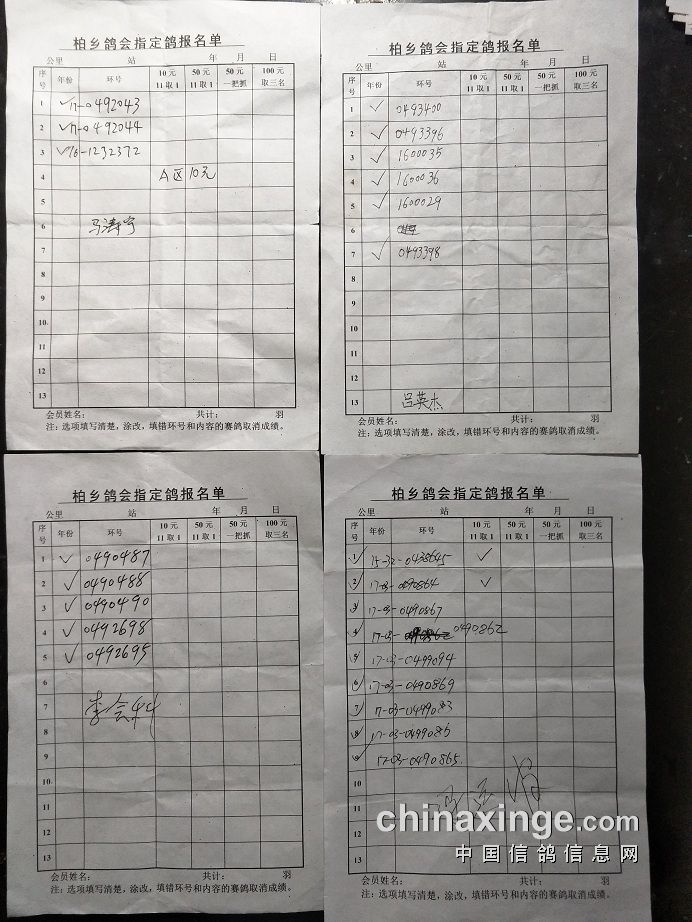 柏乡鸽会指定鸽报名单
公里 站 年 月 日
序号 年份 环号 10元11取1 50元11取1 50元一把抓 100元取三名
1 ✓17-0492043
2 ✓17-0492044
3 ✓16-1232372
4 A区10元
5
6 马涛宁
7
8
9
10
11
12
13
会员姓名： 共计： 羽
注：选项填写清楚，涂改，填错环号和内容的赛鸽取消成绩。
柏乡鸽会指定鸽报名单
公里 站 年 月 日
序号 年份 环号 10元11取1 50元11取1 50元一把抓 100元取三名
1 ✓ 0493400
2 ✓ 0493396
3 ✓ 1600035
4 ✓ 1600036
5 ✓ 1600029
6
7 ✓ 0493398
8
9
10
11
12
13 吕英杰
会员姓名： 共计： 羽
注：选项填写清楚，涂改，填错环号和内容的赛鸽取消成绩。
柏乡鸽会指定鸽报名单
公里 站 年 月 日
序号 年份 环号 10元11取1 50元11取1 50元一把抓 100元取三名
1 ✓ 0490487
2 ✓ 0490488
3 ✓ 0490490
4 ✓ 0492698
5 ✓ 0492695
6
7 李会科
8
9
10
11
12
13
会员姓名： 共计： 羽
注：选项填写清楚，涂改，填错环号和内容的赛鸽取消成绩。
柏乡鸽会指定鸽报名单
公里 站 年 月 日
序号 年份 环号 10元11取1 50元11取1 50元一把抓 100元取三名
1 15-32-0438645 ✓
2 17-03-0490864 ✓
3 17-03-0490867
4 17-03-0490862
5 17-03-0499094
6 17-03-0490869
7 17-03-0499083
8 17-03-0499085
9 17-03-0490865
10
11
12
13
会员姓名： 共计： 羽
注：选项填写清楚，涂改，填错环号和内容的赛鸽取消成绩。
chinaxinge.com
中国信鸽信息网